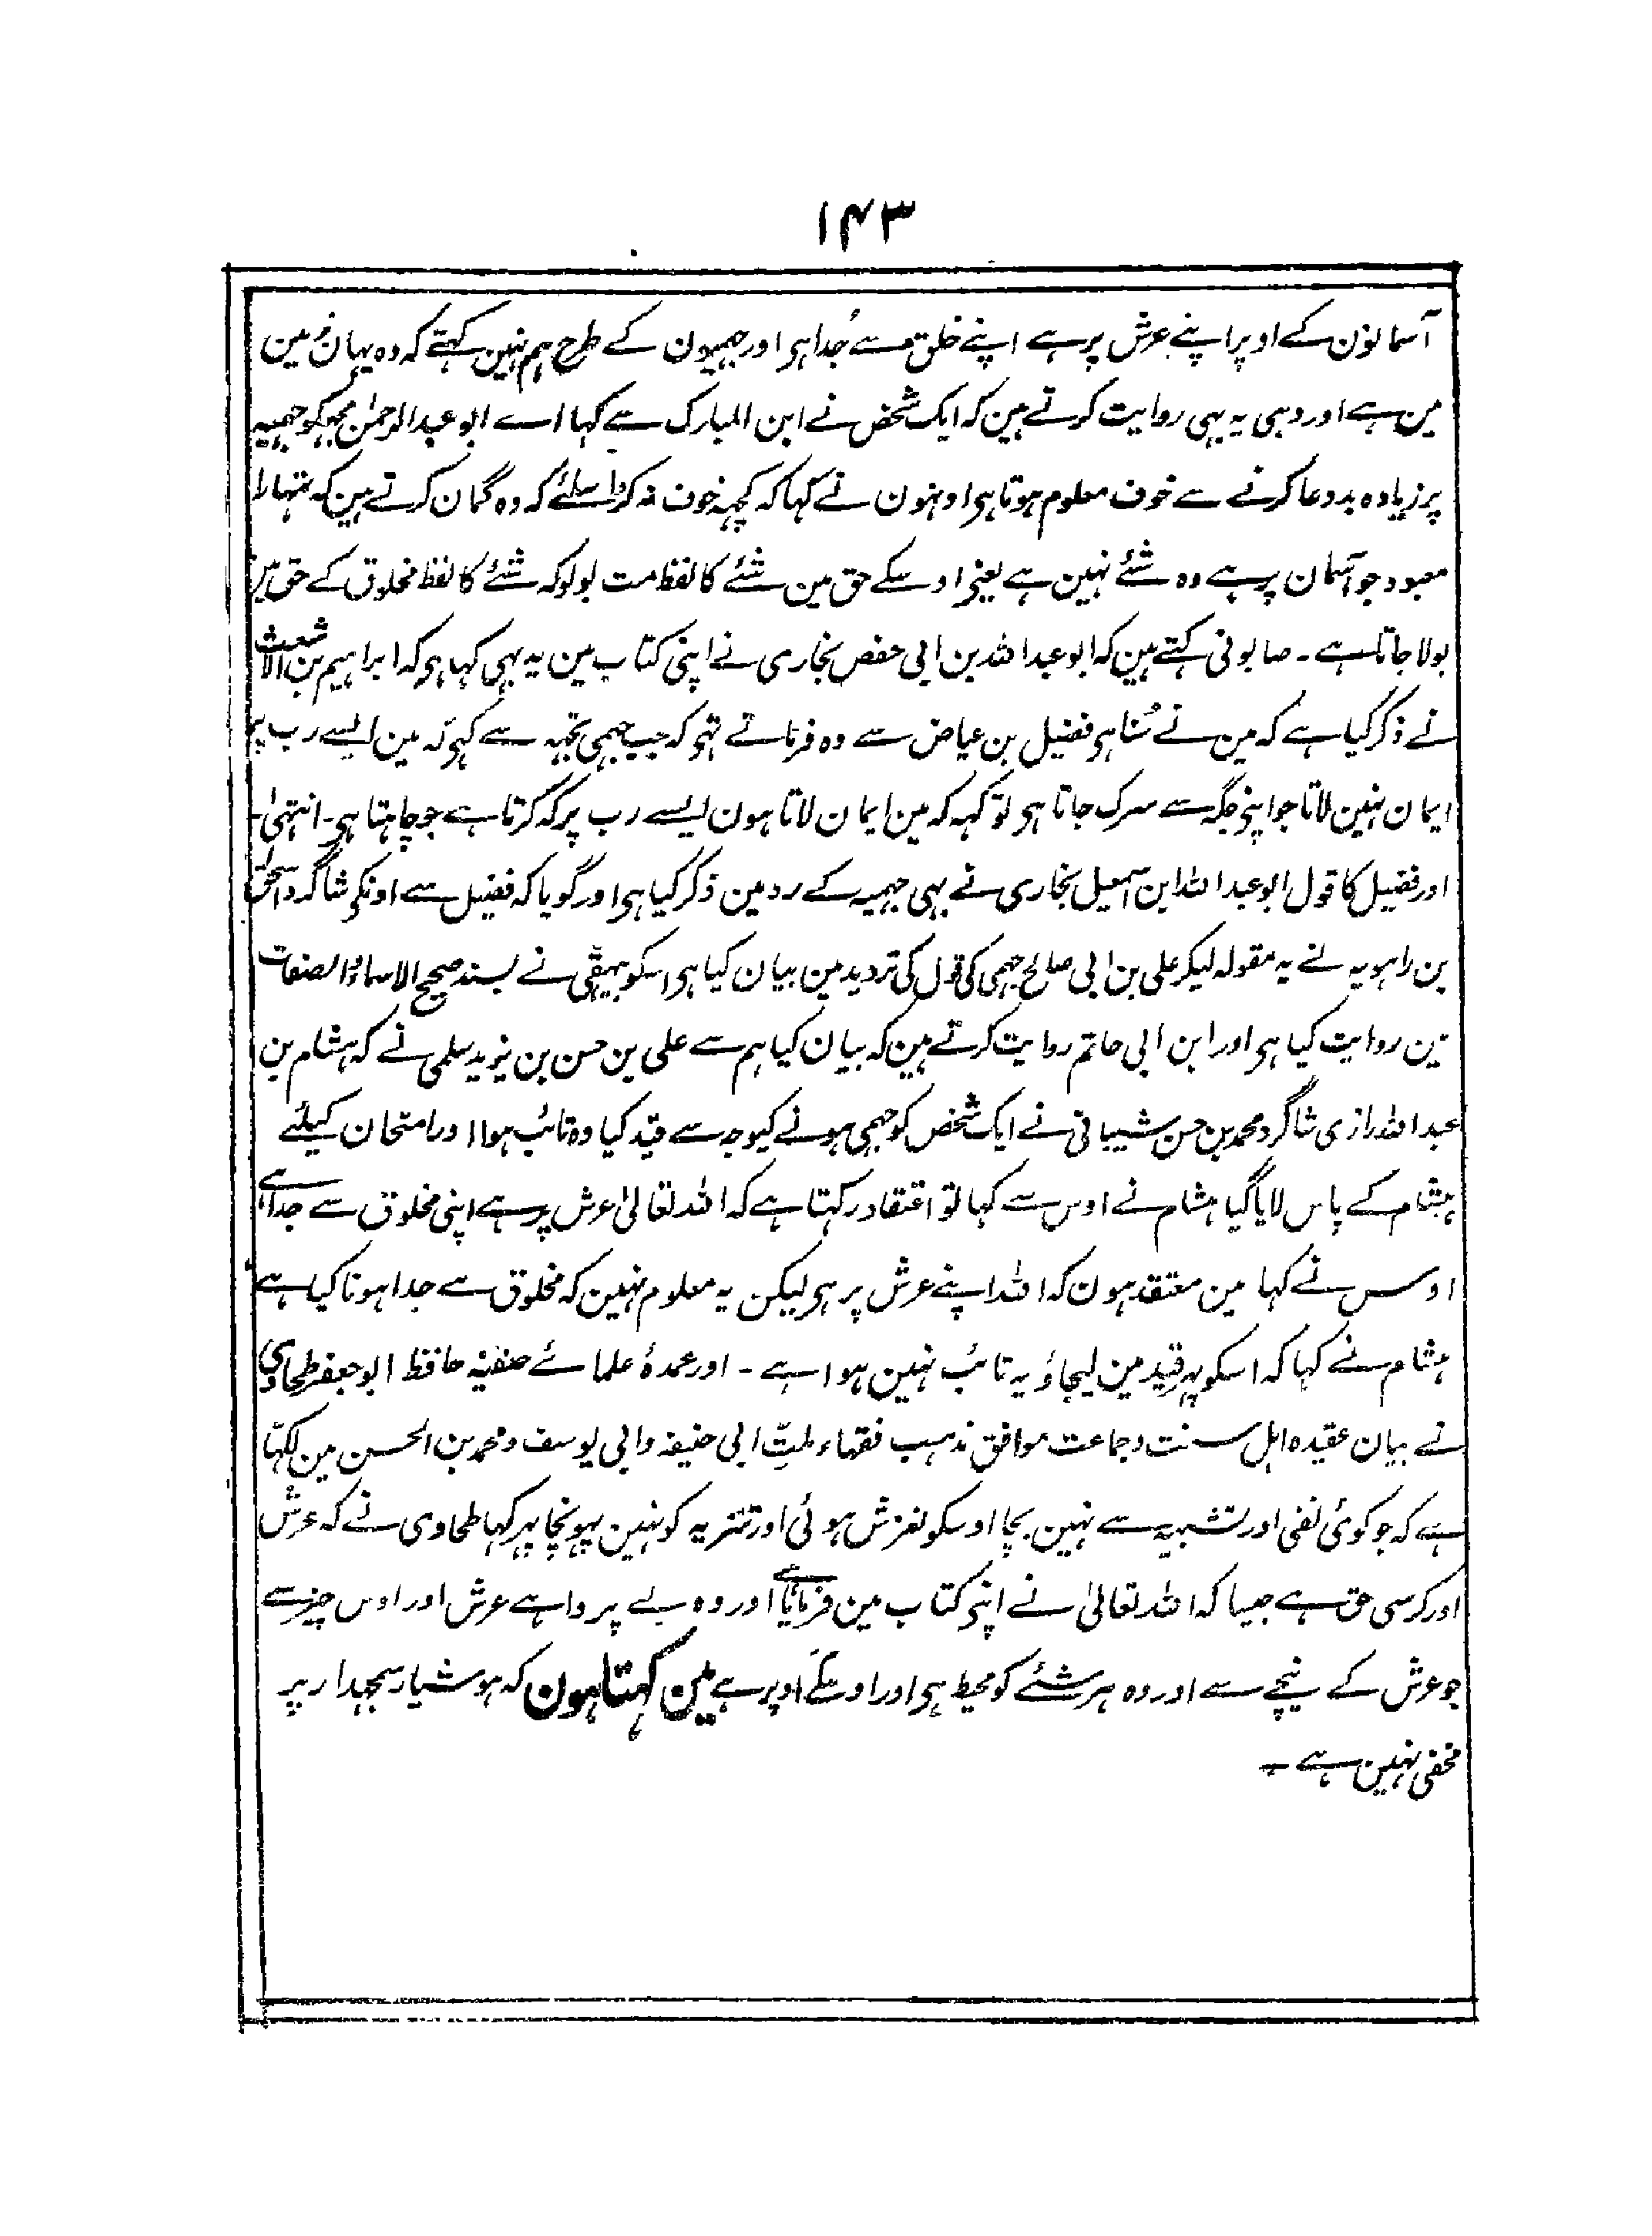 ۱۴۳
آسمانون کے اوپر اپنے عرش پر ہے اپنے خلق سے جُدا ہی اور جہمیون کے طرح ہم نہین کہتے کہ وہ یہان زمین
مین ہے اور وہی یہ بہی روایت کرتے ہین کہ ایک شخص نے ابن المبارک سے کہا اے ابو عبدالرحمٰن مجہکو جہمیہ
پر زیادہ بددعا کرنے سے خوف معلوم ہوتا ہی اونہون نے کہا کہ کچہہ خوف نہ کرو اسلئے کہ وہ گمان کرتے ہین کہ تمہارا
معبود جو آسمان پر ہے وہ شئے نہین ہے یعنی اوسکے حق مین شئے کا لفظ مت بولو کہ شئے کا لفظ مخلوق کے حق مین
بولا جاتا ہے ۔ صابونی کہتے ہین کہ ابو عبداللہ بن ابی حفص بخاری نے اپنی کتاب مین یہ بہی کہا ہی کہ ابراہیم بن الاشعث
نے ذکر کیا ہے کہ مین نے سُنا ہی فضیل بن عیاض سے وہ فرماتے تہی کہ جب جہمی تجہہ سے کہی کہ مین ایسے رب پر
ایمان نہین لاتا جو اپنی جگہ سے سرک جاتا ہی تو کہہ کہ مین ایمان لاتا ہون ایسے رب پر کہ کرتا ہے جو چاہتا ہی ۔ انتہیٰ ۔
اور فضیل کا قول ابو عبداللہ ابن اسمعیل بخاری نے بہی جہمیہ کے رد مین ذکر کیا ہی اور گویا کہ فضیل سے اونکی شاگرد اسحٰق
بن راہویہ نے یہ مقولہ لیکر علی بن ابی صالح جہمی کی قول کی تردید مین بیان کیا ہی اسکو بیہقی نے بسند صحیح الاسماء والصفات
مین روایت کیا ہی اور ابن ابی حاتم روایت کرتے ہین کہ بیان کیا ہم سے علی بن حسن بن یزید سلمی نے کہ ہشام بن
عبداللہ رازی شاگرد محمد بن حسن شیبانی نے ایک شخص کو جہمی ہونے کیوجہ سے قید کیا وہ تائب ہوا اور امتحان کیلئے
ہشام کے پاس لایا گیا ہشام نے اوس سے کہا تو اعتقاد رکہتا ہے کہ اللہ تعالیٰ عرش پر ہے اپنی مخلوق سے جدا ہے
اوس نے کہا مین معتقد ہون کہ اللہ اپنے عرش پر ہی لیکن یہ معلوم نہین کہ مخلوق سے جدا ہونا کیا ہے
ہشام نے کہا کہ اسکو پہر قید مین لیجاؤ یہ تائب نہین ہوا ہے ۔ اور عمدۂ علمائے حنفیہ حافظ ابو جعفر طحاوی
نے بیان عقیدہ اہل سنت وجماعت موافق مذہب فقہاء ملتِ ابی حنیفہ وابی یوسف ومحمد بن الحسن مین لکہا
ہے کہ جو کوئی نفی اور تشبیہ سے نہین بچا اوسکو لغزش ہوئی اور تنزیہ کو نہین پہونچا پہر کہا طحاوی نے کہ عرش
اور کرسی حق ہے جیسا کہ اللہ تعالیٰ نے اپنی کتاب مین فرمایا ہے اور وہ بے پروا ہے عرش اور اوس چیز سے
جو عرش کے نیچے ہے اور وہ ہر شئے کو محیط ہی اور اوسکے اوپر ہے مین کہتا ہون کہ ہوشیار سمجہدار پر
مخفی نہین ہے ۔